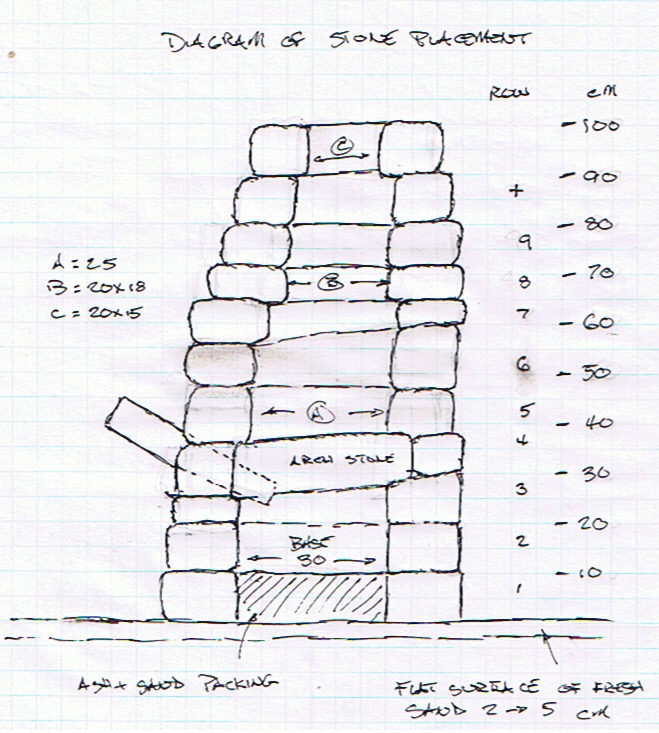 DIAGRAM OF STONE PLACEMENT
ROW cm
- 100
C
- 90
+
- 80
9
A = 25
- 70
B
8
B = 20x18
C = 20x15
7
- 60
6
- 50
5
A
- 40
4
ARCH STONE
- 30
3
- 20
BASE
2
30
- 10
1
ASH + SAND PACKING
FLAT SURFACE OF FRESH
SAND 2 → 5 cm